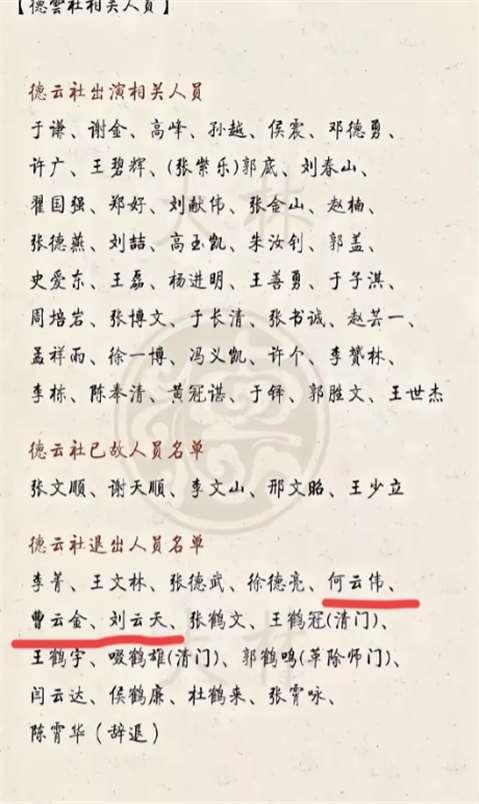 【德雲社相关人员】
德云社出演相关人员
于谦、谢金、高峰、孙越、侯震、邓德勇、
许广、王碧辉、(张紫乐)郭底、刘春山、
翟国强、郑好、刘献伟、张金山、赵楠、
张德燕、刘喆、高玉凯、朱汝钊、郭盖、
史爱东、王磊、杨进明、王善勇、于子淇、
周培岩、张博文、于长清、张书诚、赵芸一、
孟祥雨、徐一博、冯义凯、许个、李赞林、
李栋、陈奉清、黄冠谌、于铎、郭胜文、王世杰
德云社已故人员名单
张文順、谢天順、李文山、邢文昭、王少立
德云社退出人员名单
李菁、王文林、张德武、徐德亮、何云伟、
曹云金、刘云天、张鹤文、王鹤冠(清门)、
王鹤宇、啜鹤雄(清门)、郭鹤鸣(革除师门)、
闫云达、侯鹤廉、杜鹤来、张霄咏、
陈霄华(辞退)
大林
大林